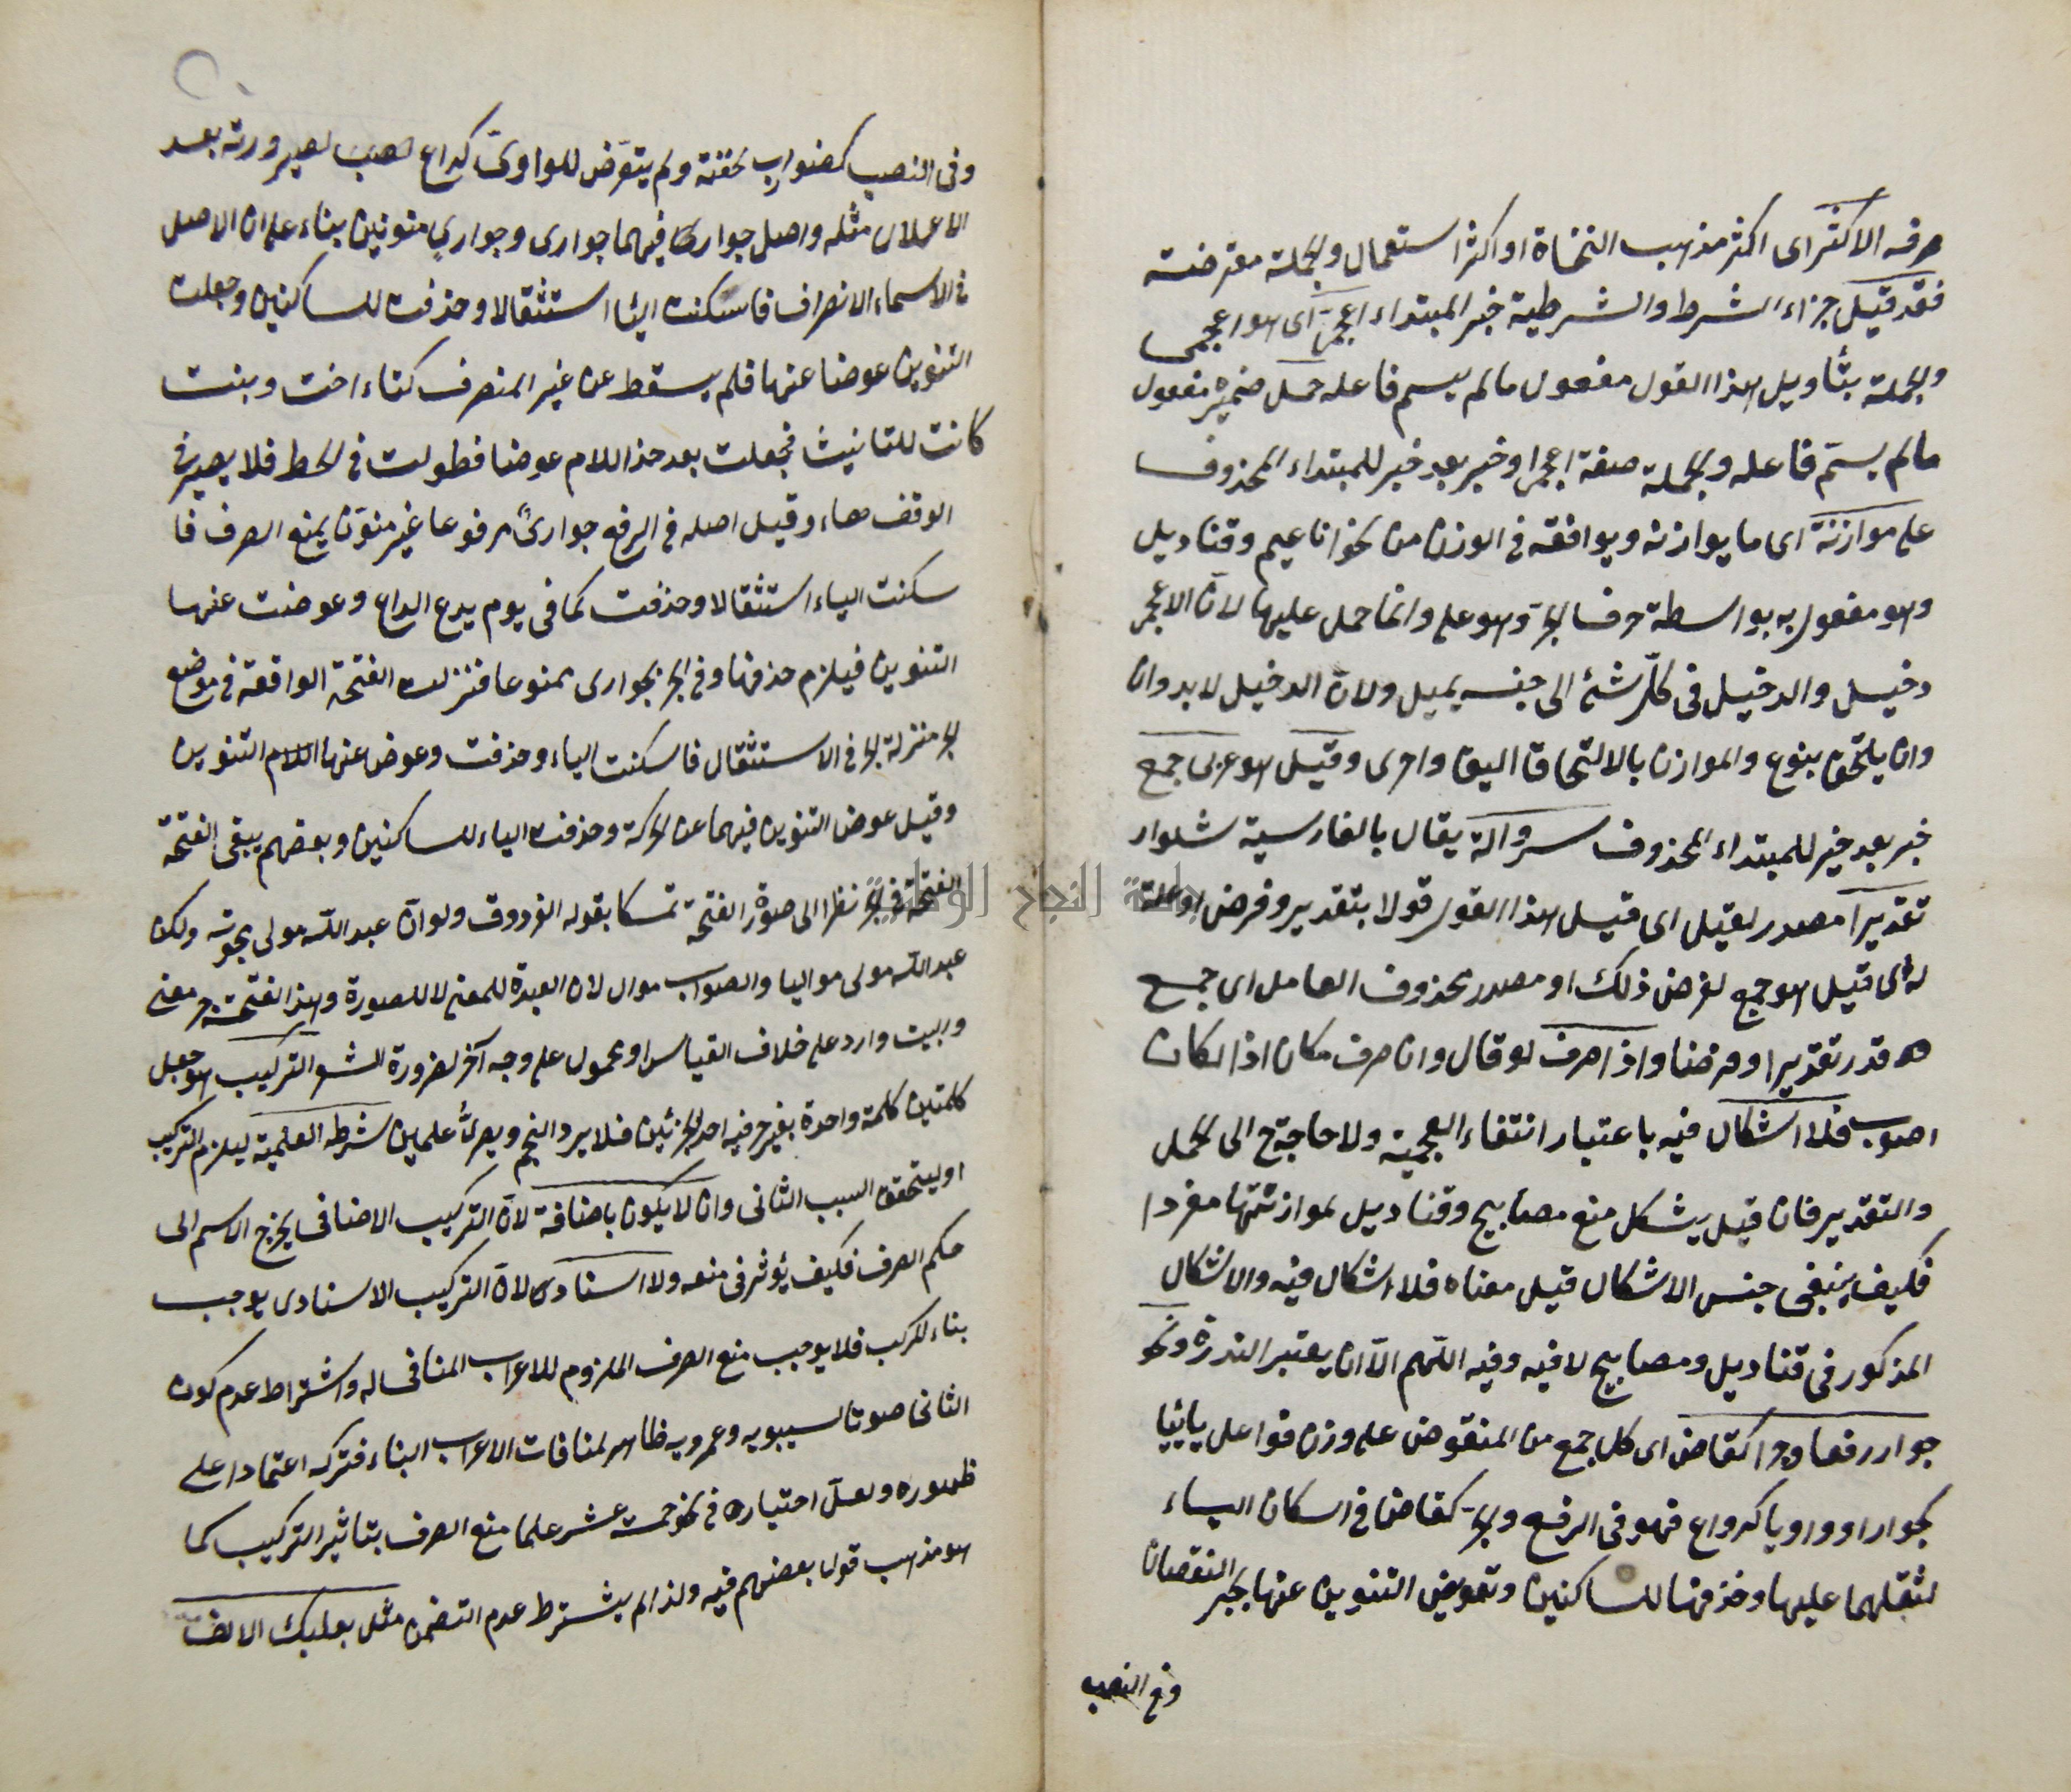 صرفه الاكثر اى اكثر مذهب النحاة او اكثر استعمال والجملة معترضة
فقد قيل جزاء الشرط والشرطية خبر المبتداء اعجمى اى هو اعجمى
والجملة بتأويل هذا القول مفعول مالم يسم فاعله حمل ضميره مفعول
مالم يسمّ فاعله والجملة صفة اعجمى او خبر بعد خبر للمبتداء المحذوف
على موازنة اى ما يوازنه ويوافقه فى الوزن من نحو اناعيم وقناديل
وهو مفعول به بواسطة حرف الجرّ وهو على وانما حمل عليها لانّ الاعجمى
دخيل والدخيل فى كلّ شئ الى جنسه يميل ولانّ الدخيل لابد وان
وان يلتحق بنوع والموازن بالالتحاق اليق واحرى وقيل هو عربى جمع
خبر بعد خبر للمبتداء المحذوف سروالة يقال بالفارسية شلوار
تقديرا مصدر لقيل اى قيل هذا القول قولا بتقدير وفرض او علة
له اى قيل هو جمع لفرض ذلك او مصدر محذوف العامل اى جمع
قدر تقديرا وفرضا واذا صرف لو قال وان صرف مكان اذا لكان
اصوب فلا اشكال فيه باعتبار انتفاء العجمية ولا حاجة ح الى الحمل
والتقدير فان قيل يشكل منع مصابيح وقناديل لموازنتها مفردا
فكيف ينبغى جنس الاشكال قيل معناه فلا اشكال فيه والاشكال
المذكور فى قناديل ومصابيح لا فيه وفيه اللّهم الّا ان يعتبر الندرة ونحو
جوار رفعا وجرا كقاض اى كل جمع من المنقوص على وزن فواعل يائيا
كجوار او واويا كدواع فهو فى الرفع والجرّ كقاض فى اسكان الياء
لثقلهما عليها وحذفها للساكنين وتعويض التنوين عنها بجبر النقصان
وفى النصب
وفى النصب كضوارب لخفته ولم يتعرّض للواوىّ كدواع لصيرورته بعد
الاعلال مثله واصل جوار فيهما جوارى وجوارى منونين بناء على ان الاصل
فى الاسماء الانصراف فاسكنت الياء استثقالا وحذفت للساكنين وجعلت
التنوين عوضا عنها فلم يسقط عن غير المنصرف كتاء اخت وبنت
كانت للتانيث فجعلت بعد حذف اللام عوضا فطولت فى الخط فلا يصير فى
الوقف هاء وقيل اصله فى الرفع جوارى مرفوعا غير منوّن لمنع الصرف فا
سكنت الياء استثقالا وحذفت كما فى يوم يدع الداع وعوضت عنها
التنوين فيلزم حذفها وفى الجر بجوارى ممنوعا فنزلت الفتحة الواقعة فى موضع
الجر منزلة الجر فى الاستثقال فاسكنت الياء وحذفت وعوض عنها اللام التنوين
وقيل عوض التنوين فيهما عن الحركة وحذفت الياء للساكنين وبعضهم يبقى الفتحة
الفتحة فى الجر نظرا الى صورة الفتحة تمسكا بقوله الفرزدوق ولو انّ عبد الله مولى هجوته ولكن
عبد الله مولى مواليا والصواب موال لان العبرة للمعنى لا للصورة وهذا الفتحة جر معنى
والبيت وارد على خلاف القياس او محمول على وجه آخر لضرورة الشعر التركيب هو جعل
كلمتين كلمة واحدة بغير حرفيه احد الجزئين فلا يرد النجم وبصرىّ علمين شرطه العلمية ليلزم التركيب
او ليتحقق السبب الثانى وان لا يكون باضافة لانّ التركيب الاضافى يخرج الاسم الى
حكم الصرف فكيف يؤثر فى منعه ولا اسنادى لانّ التركيب الاسنادى يوجب
بناء المركب فلا يوجب منع الصرف الملزوم للاعراب المنافى له واشتراط عدم كون
الثانى صوتا كسيبويه وعمرويه ظاهر لمنافات الاعراب البناء فتركه اعتمادا على
ظهوره ولعلّ اختياره فى نحو خمسة عشر علما منع الصرف بتاثير التركيب كما
هو مذهب قول بعضهم فيه ولذا لم يشترط عدم التضمن مثل بعلبك الالف